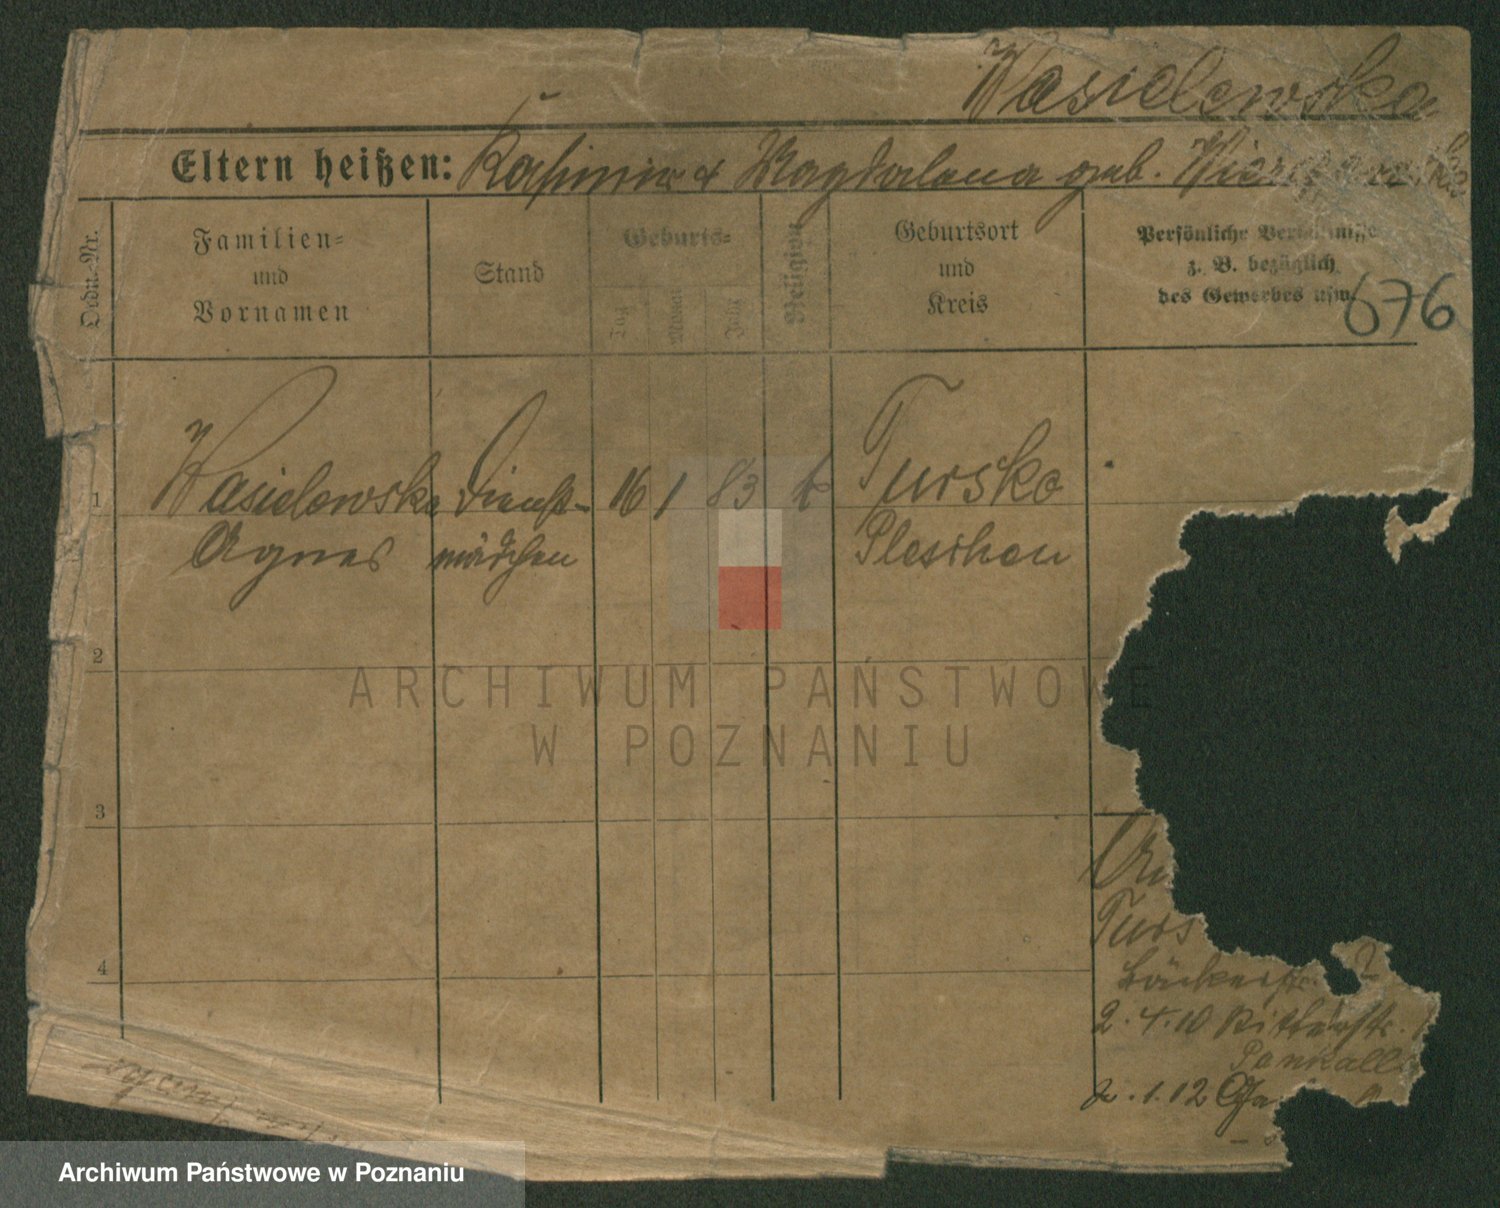 Wasielewska
Eltern heißen: Kasimir & Magdalena geb.
Ordn.-Nr.
Familien=
und
Vornamen
Stand
Geburts=
Tag
Monat
Jahr
Religion
Geburtsort
und
Kreis
Persönliche Verhältnisse
z. B. bezüglich
des Gewerbes usw.
676
1
Wasielewska Dienst- 16 1 83 k Tursko
Agnes mädchen Pleschen
2
3
4
Turs
Bäckerstr. 2
2.4.10 Ritterstr.
Pankall
1.12
ARCHIWUM PAŃSTWOWE
W POZNANIU
Archiwum Państwowe w Poznaniu